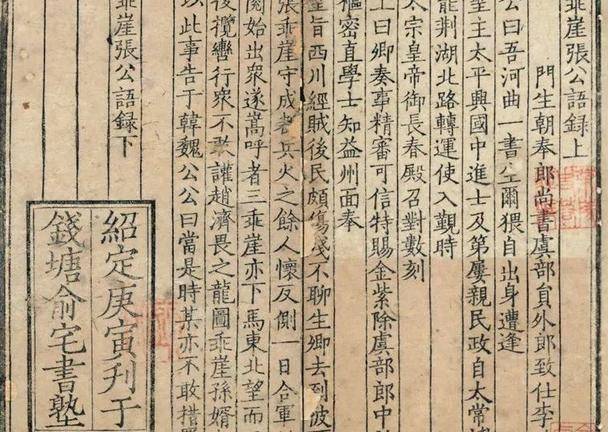 乖崖張公語録上
門生朝奉郎尚書虞部員外郎致仕李
公曰吾河曲一書生爾猥自出身遭逢
聖主太平興國中進士及第屢親民政自太常
罷荆湖北路轉運使入覲時
太宗皇帝御長春殿召對數刻
上曰卿奏事精審可信特賜金紫除虞部郎中
樞密直學士知益州面奉
聖旨西川經賊後民頗傷殘不聊生卿去到彼
張乖崖守成都兵火之餘人懷反側一日合軍
閱始出衆遂嵩呼者三乖崖亦下馬東北望而
後攬轡行衆不敢讙趙濟畏之龍圖乖崖孫婿
以此事告于韓魏公公曰當是時某亦不敢措
乖崖張公語録下
紹定庚寅刋于
錢塘俞宅書塾